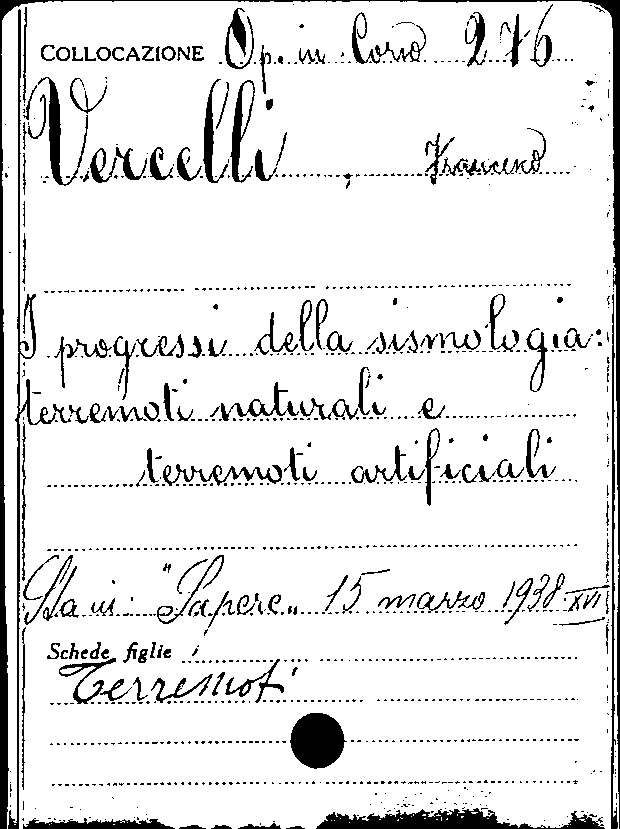 COLLOCAZIONE Op. in Corso 276
Vercelli, Francesco
I progressi della sismologia:
terremoti naturali e
terremoti artificiali
Sta in: "Sapere" 15 marzo 1938 XVI
Schede figlie
Terremoti